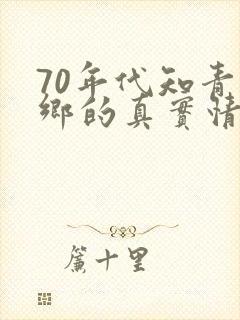 70年代知青
鄉的真實情
簾十里